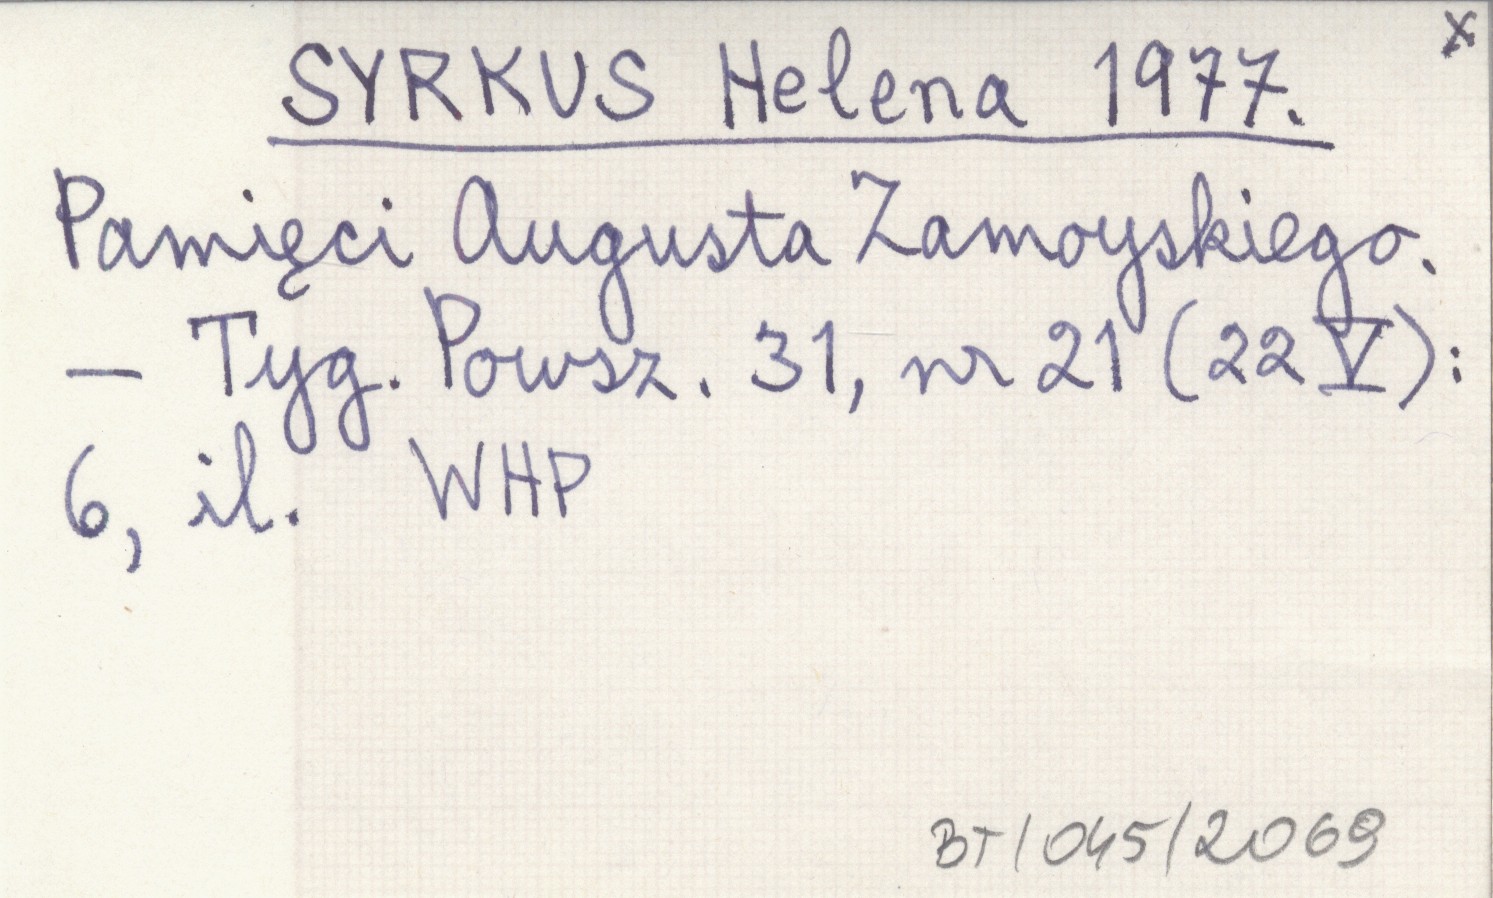 x
SYRKUS Helena 1977.
Pamięci Augusta Zamoyskiego.
— Tyg. Powsz. 31, nr 21 (22 V):
6, il. WHP
BT/045/2069